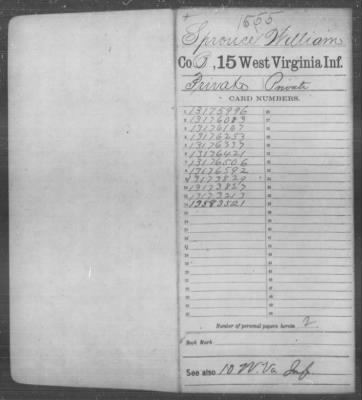 1555
Sprouce William
Co B, 15 West Virginia Inf.
Private Private
CARD NUMBERS.
1 13175996
2 13176083
3 13176167
4 13176253
5 13176337
6 13176421
7 13176506
8 13176592
9 13173829
10 13173827
11 13173213
12 13583521
Number of personal papers herein 2
Book Mark
See also 10 W. Va. Inf.